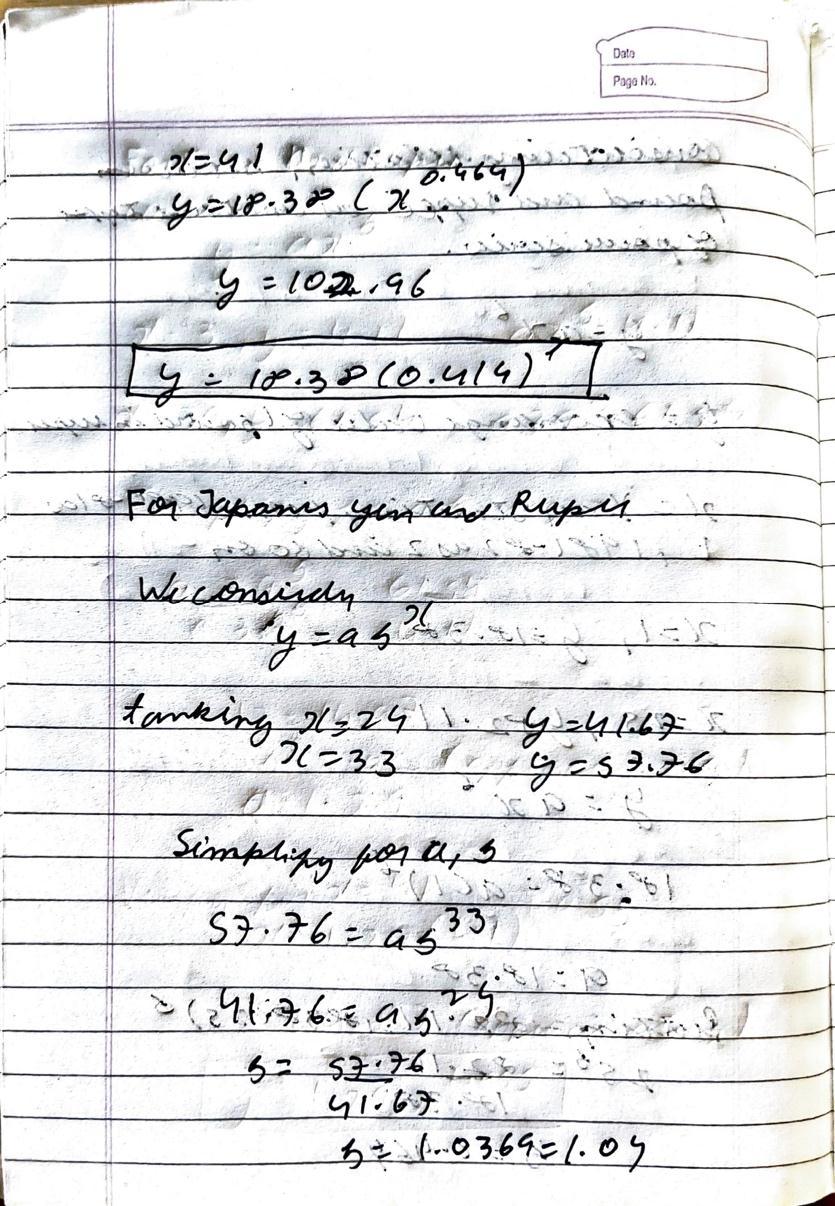 Date
Page No.
x=41
y=18.38 (x^0.464)
y = 102.96
y = 18.38 (0.414)^x
For Japanis yin and Rupee
We considdy
y = a b^x
tanking x=24 y=41.67
x=33 y=57.76
Simplify for a, b
57.76 = ab^33
41.76 = ab^24
b= 57.76
41.67
b= 1.0369=1.04